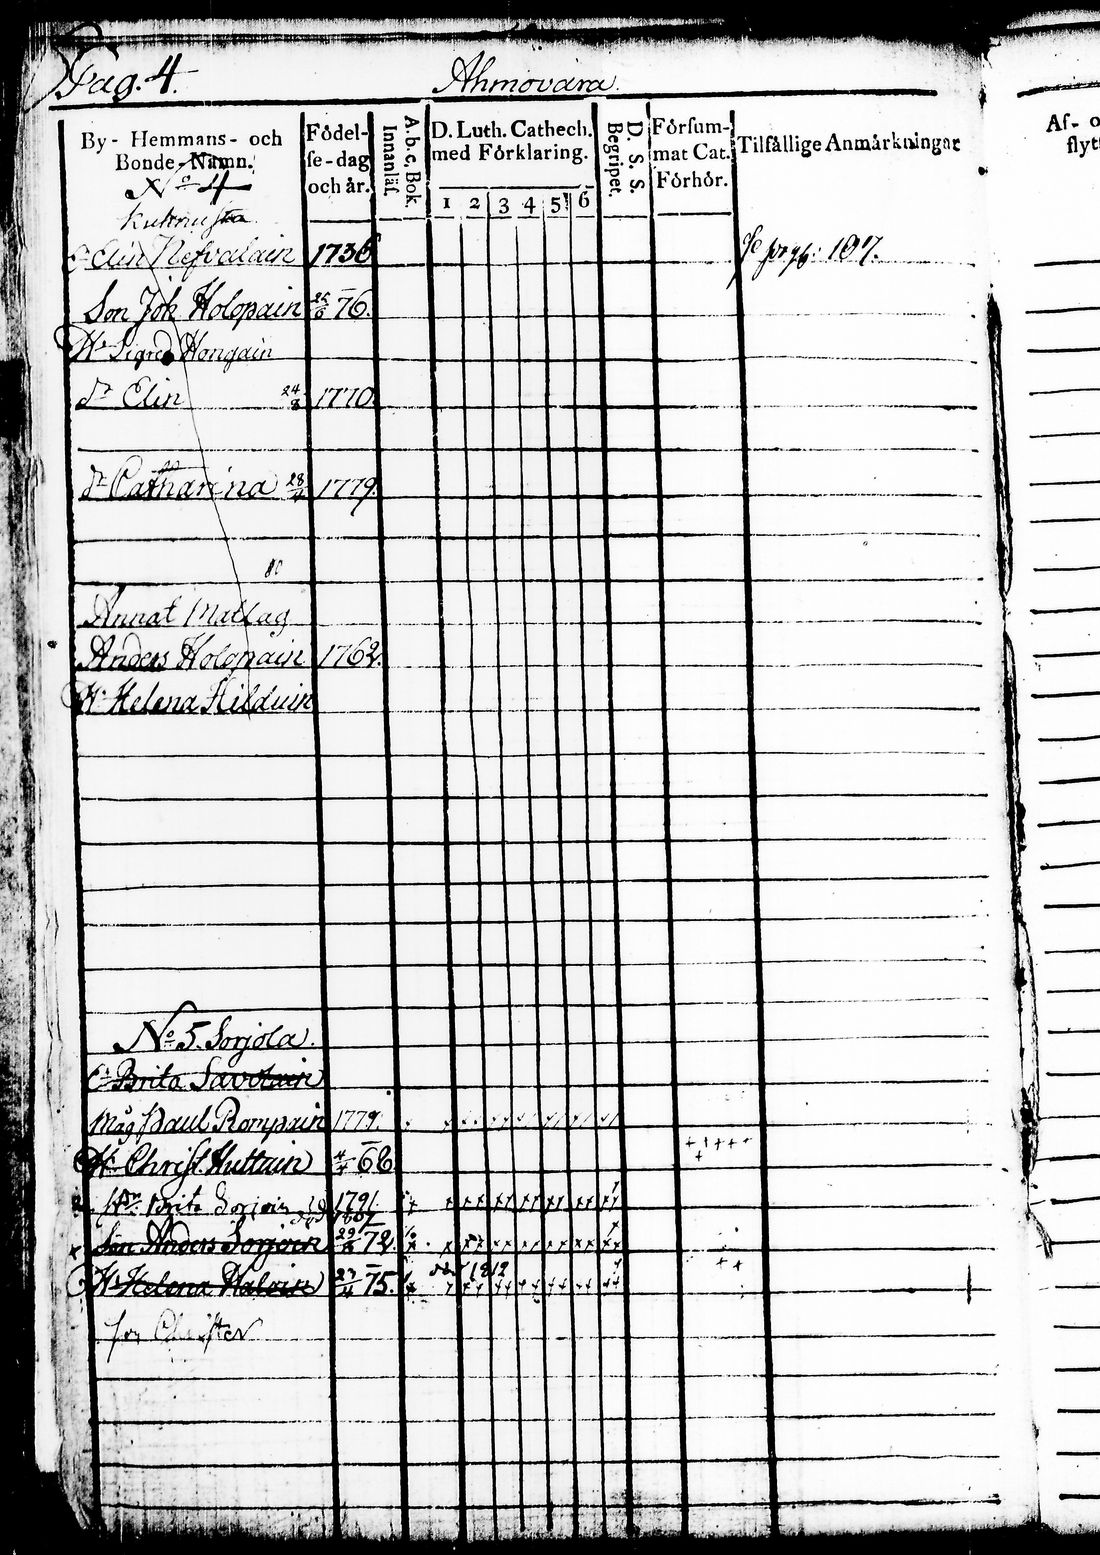 Pag. 4. Ahmovara.
By- Hemmans- och Bonde-Namn.
Födel-se-dag och år.
A.b.c, Bok. Innanläs.
D. Luth. Cathech. med Förklaring.
1 2 3 4 5 6
D. S. S. Begripet.
Försum-mat Cat. Förhör.
Tilfällige Anmärkningar
Af- o
flytt
No 4
Elin Nefvalain 1736 107.
Son Joh Holopain 76.
H. Sigred Hongain
dr Elin 24/8 1770
dr Catharina 28 1779.
Annat Matlag
Anders Holopain 1762.
H. Helena Hilduin
No 5. Sorjola.
Brita Savolain
Måg Paul Rompain 1779.
H. Christ. Huttuin 4/4 68
Brita Sorjoin 1791
1807
Son Anders Sorjoin 29 72
1812
H. Helena Haloin 23/4 75.
son Christer